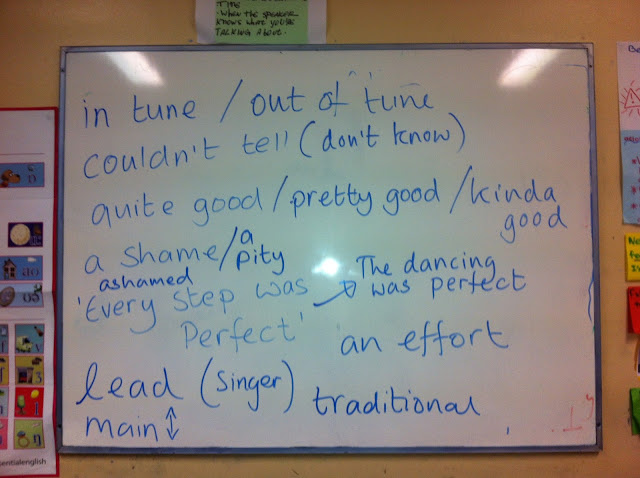 TIME
- WHEN THE SPEAKER
KNOWS WHAT YOU'RE
TALKING ABOUT.
in tune / out of tune
couldn't tell (don't know)
quite good / pretty good / kinda
good
a shame / a pity
ashamed
'Every step was Perfect' → The dancing was perfect
an effort
lead (singer)
main ↕
traditional
entialenglish